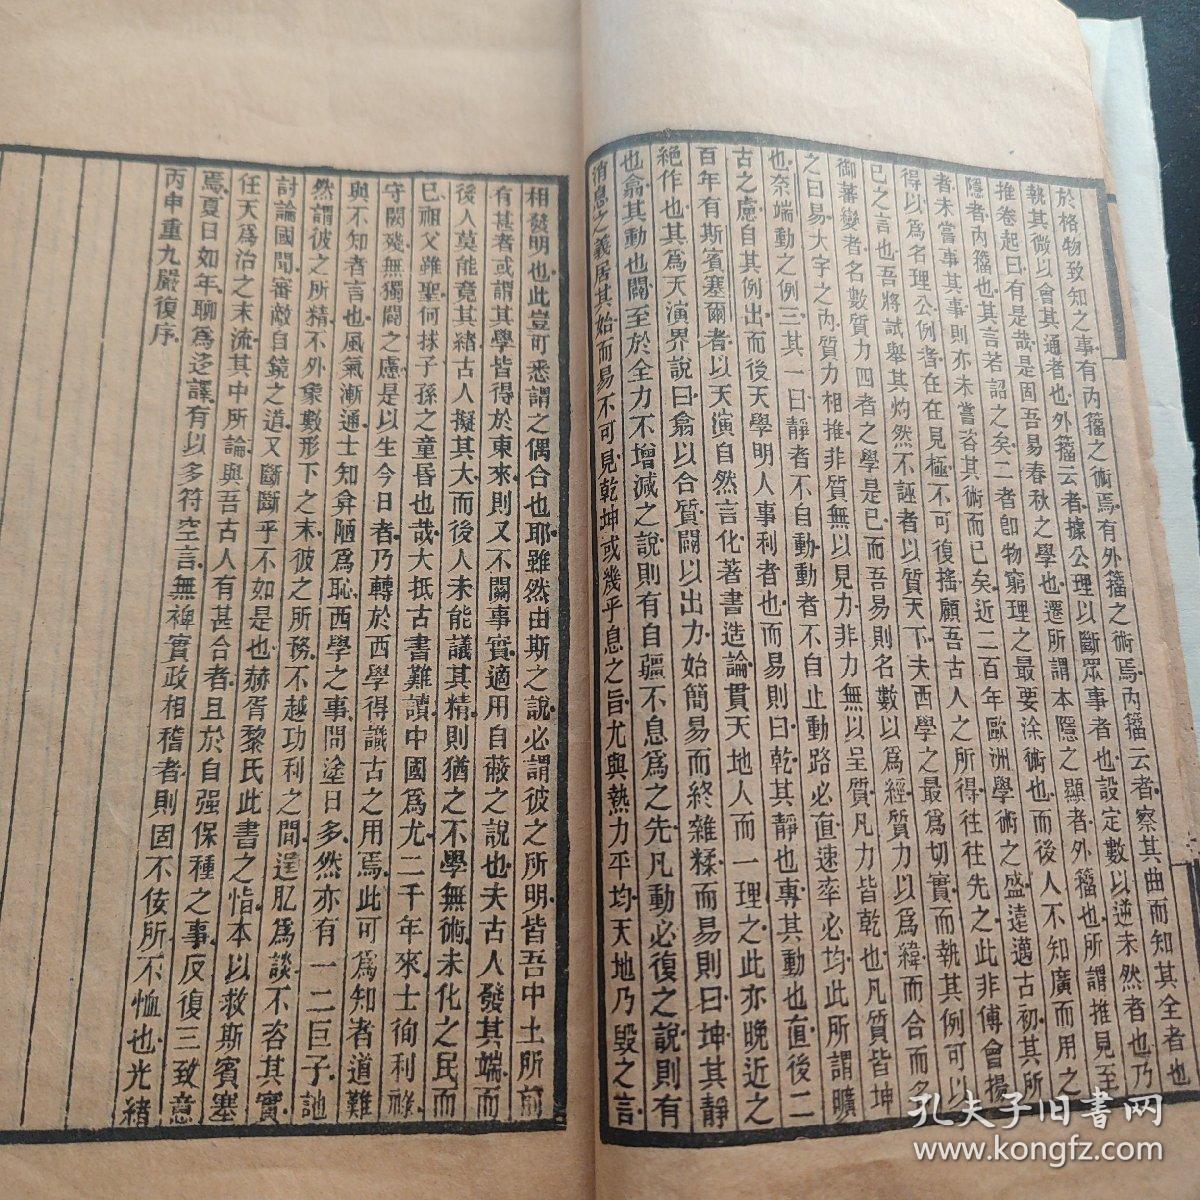 於格物致知之事有內籀之術焉有外籀之術焉內籀云者察其曲而知其全者也
執其微以會其通者也外籀云者據公理以斷眾事者也設定數以逆未然者也乃
推卷起曰有是哉是固吾易春秋之學也遷所謂本隱之顯者外籀也所謂推見至
隱者內籀也其言若詔之矣二者卽物窮理之最要涂術也而後人不知廣而用之
者未嘗事其事則亦未嘗咨其術而已矣近二百年歐洲學術之盛遠邁古初其所
得以爲名理公例者在在見極不可復搖顧吾古人之所得往往先之此非傅會揚
己之言也吾將試舉其灼然不誣者以質天下夫西學之最爲切實而執其例可以
御蕃變者名數質力四者之學是已而吾易則名數以爲經質力以爲緯而合而名
之曰易大宇之內質力相推非質無以見力非力無以呈質凡力皆乾也凡質皆坤
也奈端動之例三其一曰靜者不自動動者不自止動路必直速率必均此所謂曠
古之慮自其例出而後天學明人事利者也而易則曰乾其靜也專其動也直後二
百年有斯賓塞爾者以天演自然言化著書造論貫天地人而一理之此亦晚近之
絕作也其爲天演界說曰翕以合質闢以出力始簡易而終雜糅而易則曰坤其靜
也翕其動也闢至於全力不增減之說則有自彊不息爲之先凡動必復之說則有
消息之義居其始而易不可見乾坤或幾乎息之旨尤與熱力平均天地乃毀之言
相發明也此豈可悉謂之偶合也耶雖然由斯之說必謂彼之所明皆吾中土所前
有甚者或謂其學皆得於東來則又不關事實適用自蔽之說也夫古人發其端而
後人莫能竟其緒古人擬其大而後人未能議其精則猶之不學無術未化之民而
已祖父雖聖何捄子孫之童昏也哉大抵古書難讀中國爲尤二千年來士徇利祿
守闕殘無獨闢之慮是以生今日者乃轉於西學得識古之用焉此可爲知者道難
與不知者言也風氣漸通士知弇陋爲恥西學之事問塗日多然亦有一二巨子訑
然謂彼之所精不外象數形下之末彼之所務不越功利之間逞肊爲談不咨其實
討論國聞審敵自鏡之道又斷斷乎不如是也赫胥黎氏此書之恉本以救斯賓塞
任天爲治之末流其中所論與吾古人有甚合者且於自强保種之事反復三致意
焉夏日如年聊爲迻譯有以多符空言無裨實政相稽者則固不佞所不恤也光緒
丙申重九嚴復序
孔夫子旧书网
www.kongfz.com